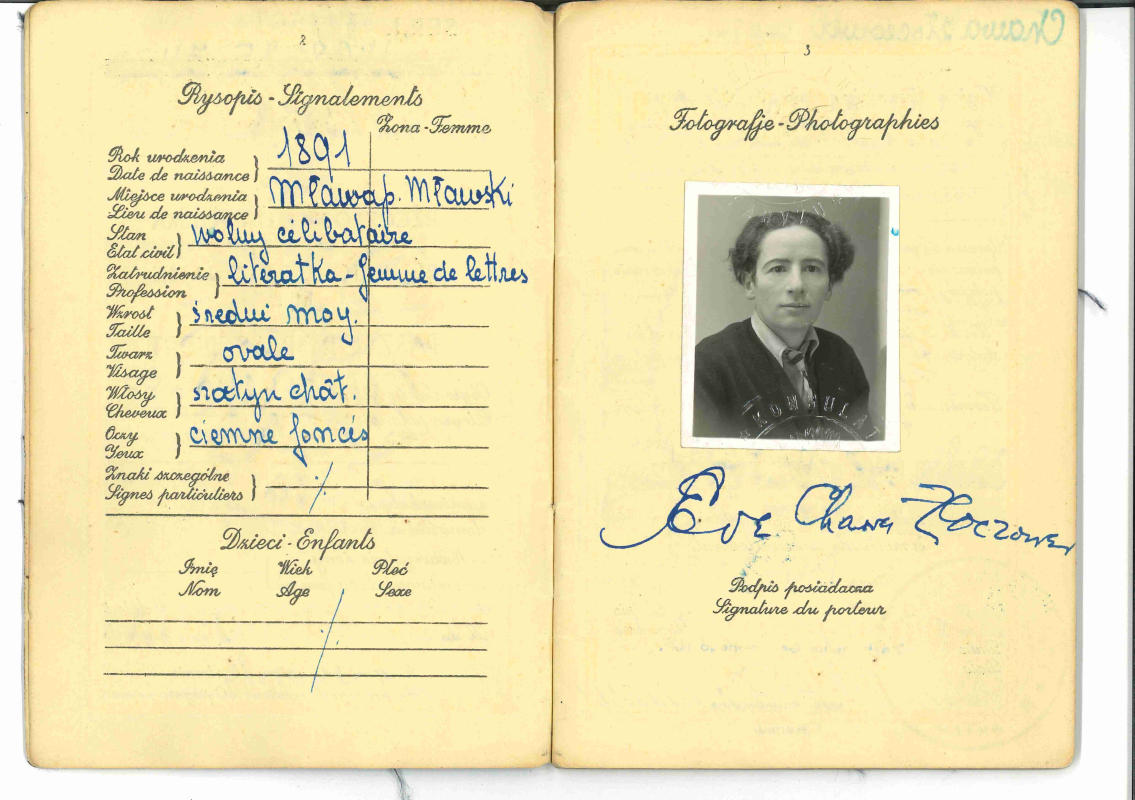 2
Rysopis - Signalements
Żona - Femme
Rok urodzenia
Date de naissance
1891
Miejsce urodzenia
Lieu de naissance
Mława p. Mławski
Stan
Etat civil
wolny célibataire
Zatrudnienie
Profession
literatka - femme de lettres
Wzrost
Taille
średni moy.
Twarz
Visage
ovale
Włosy
Cheveux
szatyn chât.
Oczy
Yeux
ciemne foncés
Znaki szczególne
Signes particuliers
Dzieci - Enfants
Imię Wiek Płeć
Nom Age Sexe
3
Fotografje - Photographies
KONSULAT
Chawa
Podpis posiadacza
Signature du porteur